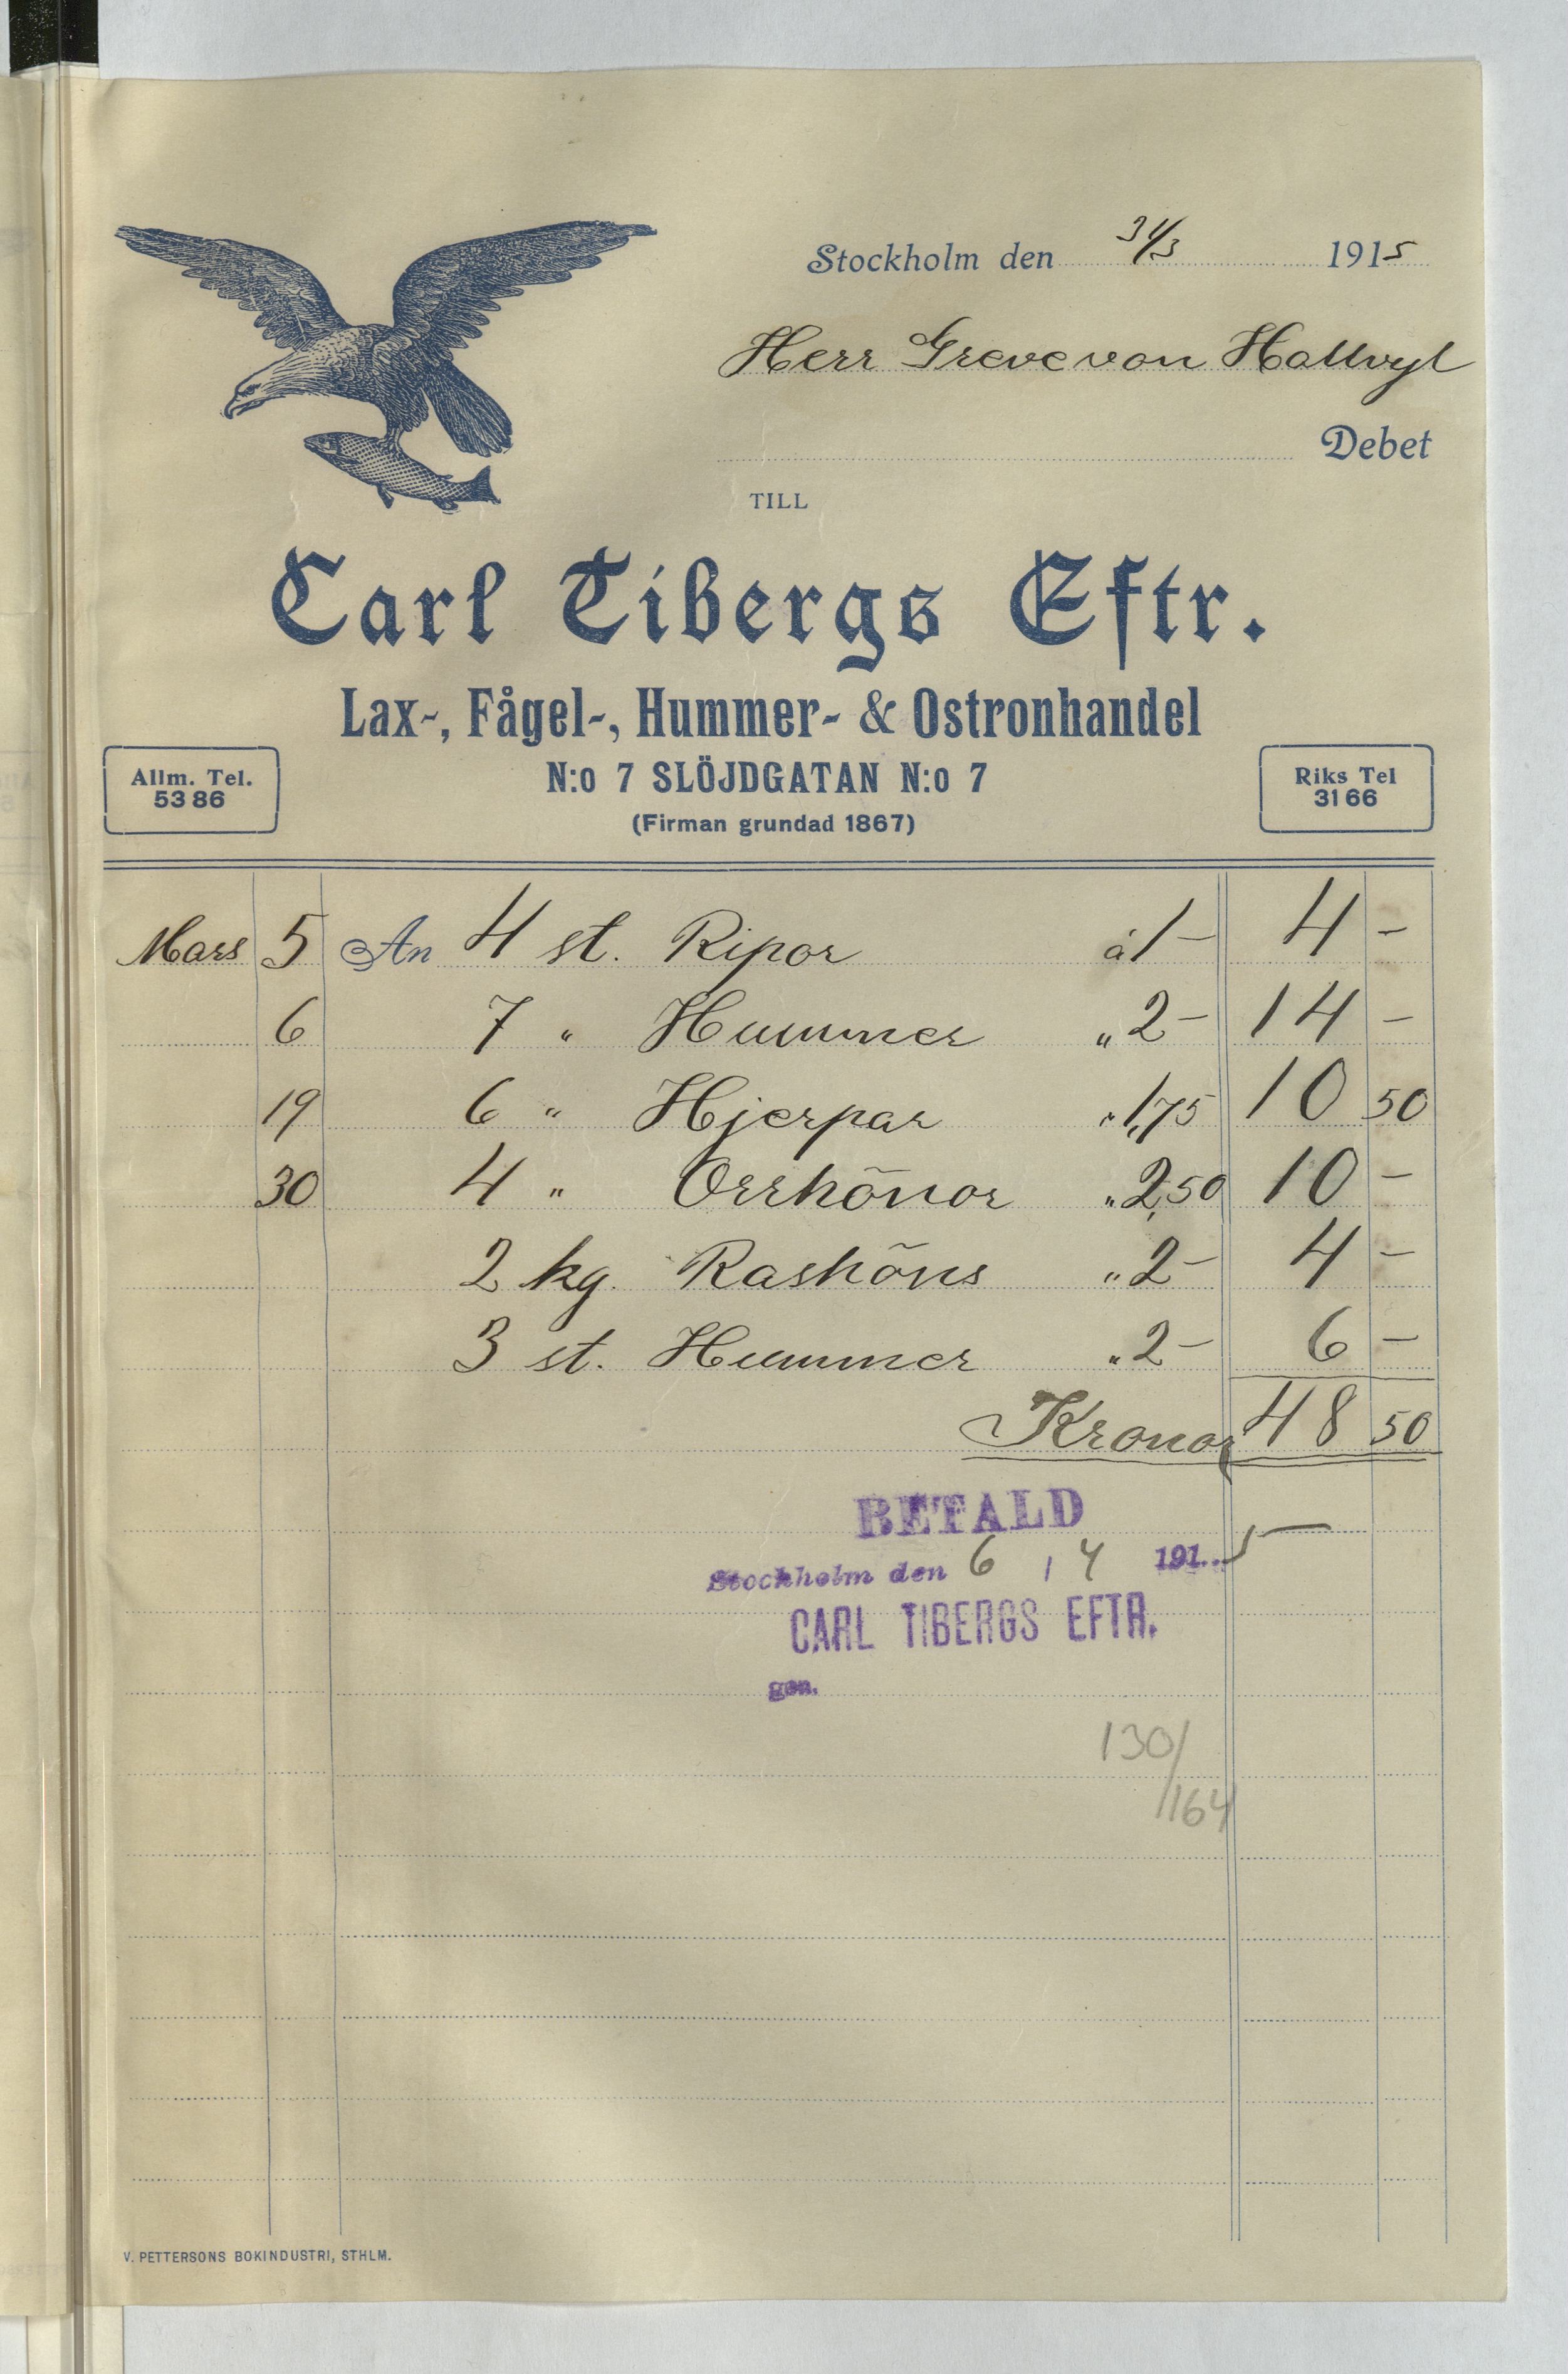 Stockholm den 31/3 1915
Herr Greve von Hallwyl
Debet
TILL
Carl Tibergs Eftr.
Lax-, Fågel-, Hummer- & Ostronhandel
Allm. Tel. 5386
N:o 7 SLÖJDGATAN N:o 7
Riks Tel 3166
(Firman grundad 1867)
Mars 5 An 4 st. Ripor à 1- 4 -
6 7 " Hummer " 2- 14 -
19 6 " Hjerpar " 1,75 10 50
30 4 " Orrhönor " 2,50 10 -
2 kg. Rashöns " 2- 4 -
3 st. Hummer " 2- 6 -
Kronor 48 50
BETALD
Stockholm den 6 / 4 191..5
CARL TIBERGS EFTR.
gen.
130/
/164
V. PETTERSONS BOKINDUSTRI, STHLM.